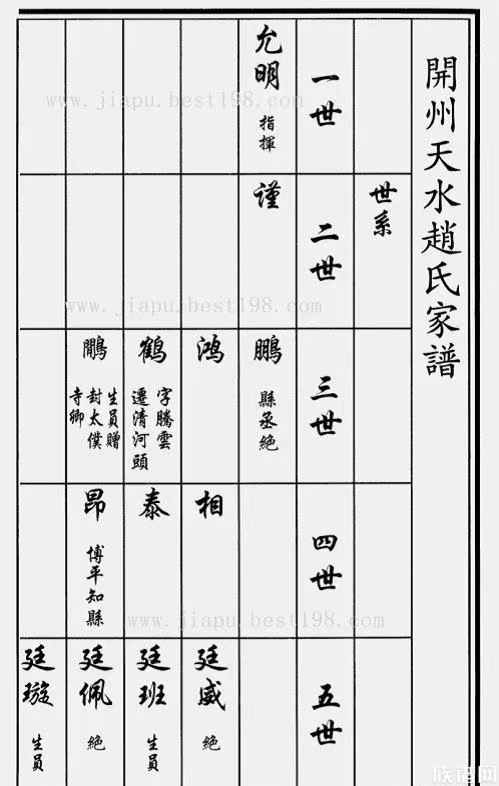 開州天水趙氏家譜
世系
一世
允明
指揮
www.jiapu.best198.com
二世
謹
www.jiapu.best198.com
三世
鵬
縣丞絕
鴻
鶴
字騰雲
遷清河頭
生員贈
封太僕
寺卿
四世
相
泰
昂
博平知縣
www.jiapu.best198.com
五世
廷威
絕
廷班
生員
廷佩
絕
廷璇
生員
族谱网